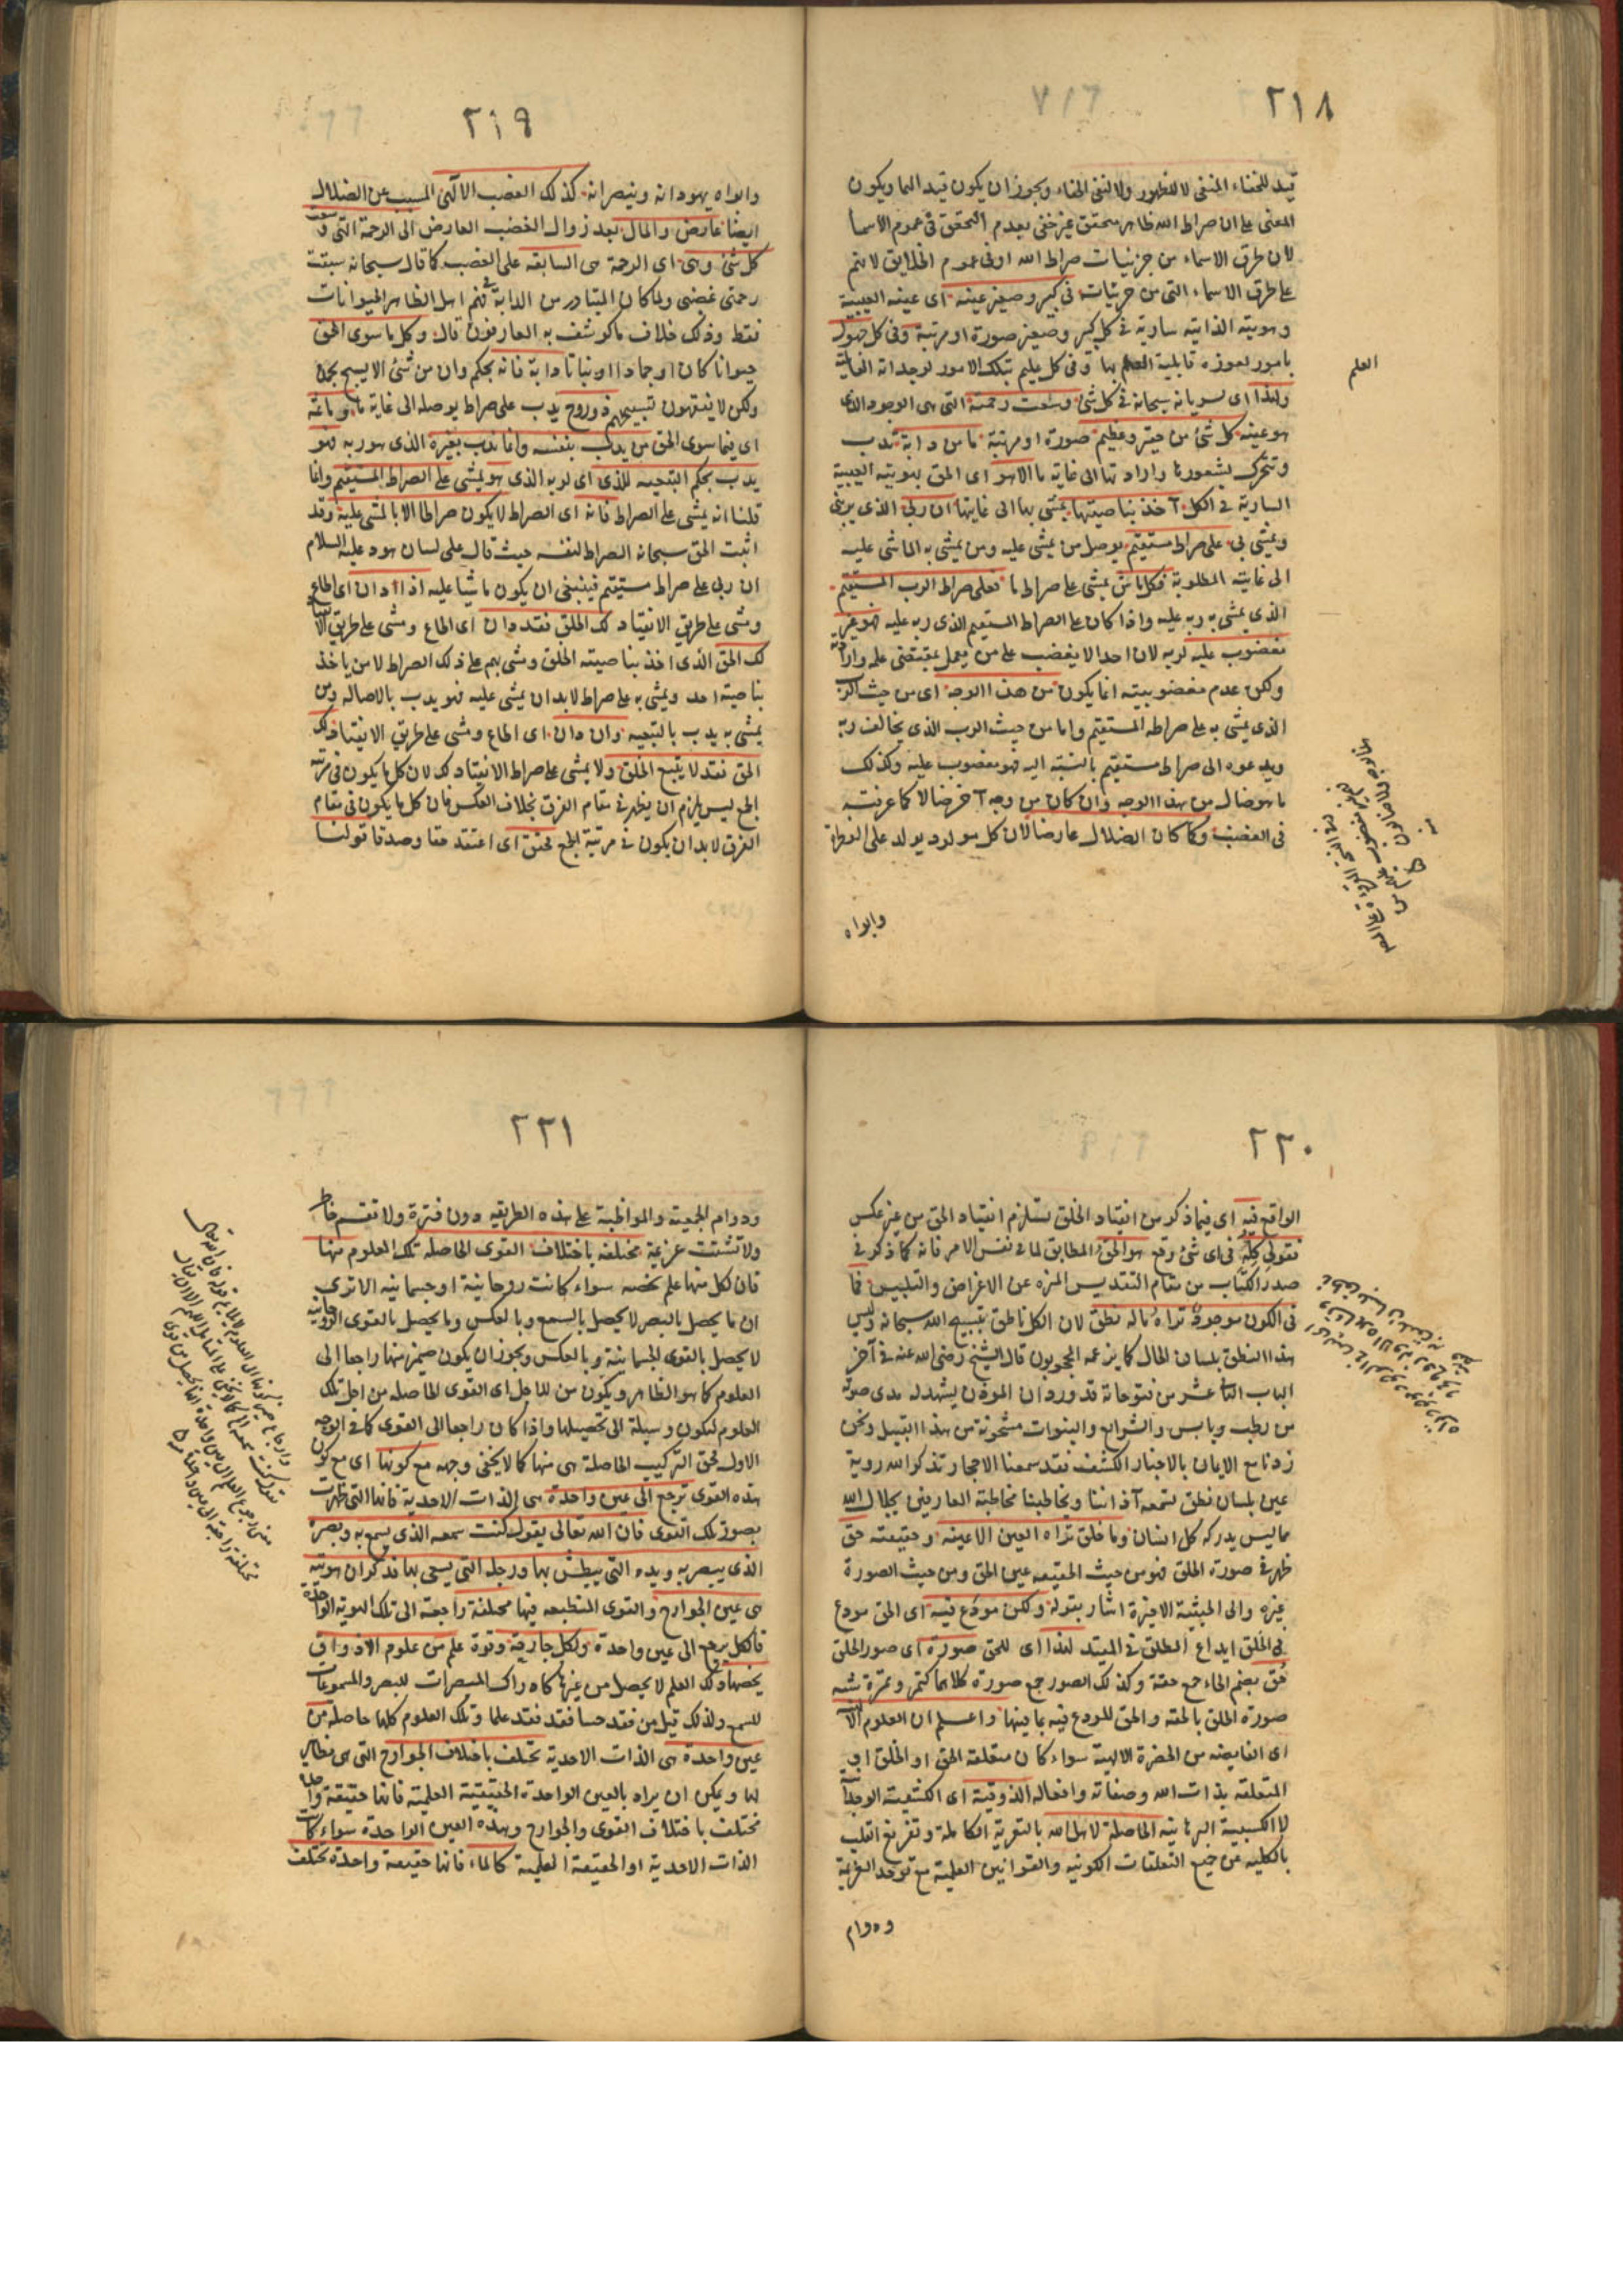 ٢١٨
قيد للخفاء المنفى لا للظهور ولا لنفى الخفاء ويجوز ان يكون قيد الهما ويكون
المعنى على ان صراط الله ظاهر متحقق غير خفى بعدم التحقق فى عموم الاسما
لان طرق الاسماء من جزئيات صراط الله اوفى عموم الخلايق لا يتم
على طرق الاسماء التى من جزئيات فى كبير وصغير عينه اى عينه الغيبية
وهويته الذاتية سارية فى كل كبير وصغير صورة او مرتبة وفى كل جهول
بامور لعوزه قابلية العلم بها وفى كل عليم بتلك الامور لوجدانه القابلية
العلم
ولهذا اى لسريانه سبحانه فى كل شئ وسعت رحمته التى هى الوجود الذى
هو عينه كل شئ من حقير وعظيم صورة او مرتبة ما من دابة تدب
وتتحرك بشعورها وارادتها الى غاية ما الا هو اى الحق بهويته الغيبية
السارية فى الكل آخذ بناصيتها يمشى بها الى غايتها ان ربى الذى يربنى
ويمشى بى على صراط مستقيم يوصل من يمشى عليه ومن يمشى به الماشى عليه
الى غايته المطلوبة فكل ماش يمشى على صراط ما فعلى صراط الرب المستقيم
الذى يمشى به ربه عليه واذا كان على الصراط المستقيم الذى ربه عليه فهو غير
مغضوب عليه لربه لان احدا لا يغضب على من يعمل بمقتضى علمه وارادته
ولكن عدم مغضوبيته انما يكون من هذا الوجه اى من حيث الرب
الذى يمشى به على صراطه المستقيم واما من حيث الرب الذى يخالف ربه
ويدعوه الى صراط مستقيم بالنسبة اليه فهو مغضوب عليه وكذلك
ما هو ضال من هذا الوجه وان كان من وجه آخر ضالا كما عرفته
فى الغضب وكما كان الضلال عارضا لان كل مولود يولد على الفطرة
وابواه
٢١٩
وابواه يهودانه وينصرانه كذلك الغضب الالهى المسبب عن الضلال
ايضا عارض والمال بعد زوال الغضب العارض الى الرحمة التى وسعت
كل شئ وهى اى الرحمة هى السابقة على الغضب كما قال سبحانه سبقت
رحمتى غضبى ولما كان المتبادر من الدابة فى فهم اهل الظاهر الحيوانات
فقط وذلك خلاف ما كوشف به العارفون قال وكل ما سوى الحق
حيوانا كان او جمادا او نباتا دابة فانه بحكم وان من شئ الا يسبح بحمده
ولكن لا تفقهون تسبيحهم ذو روح يدب على صراط يوصله الى غاية ما وما ثمه
اى فيما سوى الحق من يدب بنفسه وانما يدب بغيره الذى هو ربه فهو
يدب بحكم التبعية للذى اى لربه الذى هو يمشى على الصراط المستقيم وانما
قلنا انه يمشى على الصراط فانه اى الصراط لا يكون صراطا الا بالمشى عليه وقد
اثبت الحق سبحانه الصراط لنفسه حيث قال على لسان هود عليه السلام
ان ربى على صراط مستقيم فينبغى ان يكون ماشيا عليه اذا دان اى اطاع
ومشى على طريق الانقياد لك الخلق فقد دان اى اطاع ومشى على طريق الانقياد
لك الحق الذى اخذ بناصيته الخلق ومشى بهم على ذلك الصراط لان من ياخذ
بناصية احد ويمشى به على صراط لا بد ان يمشى عليه فهو يدب بالاصالة ومن
يمشى به يدب بالتبعية وان دان اى اطاع ومشى على طريق الانقياد لك
الحق فقد لا يتبع الخلق ولا يمشى على صراط الانقياد لك لان كل ما يكون فى مرتبة
الجمع ليس يلزم ان يظهر فى مقام الفرق بخلاف العكس فان كل ما يكون فى مقام
الفرق لا بد ان يكون فى مرتبة الجمع فحقق اى اعتقد حقا وصدقا قولنا
٢٢٠
الواقع فيه اى فيما ذكر من انقياد الخلق يستلزم انقياد الحق من غير عكس
فقولى كله فى اى شئ وقع هو الحق المطابق لما فى نفس الامر فانه كما ذكر فى
صدر الكتاب من مقام التقديس المنزه عن الاغراض والتلبيس فما
فى الكون موجود تراه ماله نطق لان الكل ناطق بتسبيح الله سبحانه وليس
هذا النطق بلسان الحال كما يزعمه المحجوبون قال الشيخ رضى الله عنه فى آخر
الباب الثانى عشر من فتوحاته قد ورد ان الموذن يشهد له مدى صوته
من رطب ويابس والشرايع والنبوات مشحونة من هذا القبيل ونحن
زدنا مع الايمان بالاخبار الكشف فقد سمعنا الاحجار تذكر الله روية
عين بلسان نطق تسمعه آذاننا وتخاطبنا مخاطبة العارفين بجلال الله
مما ليس يدركه كل انسان وما خلق تراه العين الا عينه وحقيقته حق
ظهر فى صورة الخلق فهو من حيث الحقيقة عين الحق ومن حيث الصورة
غيره والى الحيثية الاخيرة اشار بقوله ولكن مودع فيه اى الحق مودع
فى الخلق ايداع المطلق فى المقيد لهذا اى للحق صورة اى صور الخلق
حق بضم الحاء جمع حقة وكذلك الصور جمع صورة كلاهما كتمر وتمرة شبه
صورة الخلق بالحقة والحق للودع فيه بما فيها واعلم ان العلوم الالهية
اى الفايضه من الحضرة الالهية سواء كان متعلقه الحق او الخلق او
المتعلقه بذات الله وصفاته وافعاله الذوقية اى الكشفية الوجدانية
لا الكسبية البرهانية الحاصلة لاهل الله بالتعرية الكاملة وتفريغ القلب
بالكلية عن جميع التعلقات الكونية والقوانين العلمية مع توحد العزيمة
ودوام
٢٢١
ودوام الجمعية والمواظبة على هذه الطريقه دون فترة ولا تقسم خاطر
ولا تشتت عزيمة مختلفه باختلاف القوى الحاصلة تلك العلوم منها
فان لكل منها علم يخصه سواء كانت روحانية او جسمانيه الا ترى
ان ما يحصل بالبصر لا يحصل بالسمع وبالعكس وما يحصل بالقوى الروحانية
لا يحصل بالقوى الجسمانية وبالعكس ويجوز ان يكون ضمير منها راجعا الى
العلوم كما هو الظاهر ويكون من للاجل اى القوى الحاصله من اجل تلك
العلوم لتكون وسيلة الى تحصيلها واذا كان راجعا الى القوى كما فى الوجه
الاول فحق التركيب الحاصلة هى منها كما لا يخفى وجهه مع كونها اى مع كون
هذه القوى ترجع الى عين واحدة هى الذات الاحدية فانها التى ظهرت
بصور تلك القوى فان الله تعالى يقول كنت سمعه الذى يسمع به وبصره
الذى يبصر به ويده التى يبطش بها ورجله التى يسعى بها فذكر ان هويته
هى عين الجوارح والقوى المنطبعه فيها مختلفة راجعة الى تلك الهوية الواحدة
فالكل يرجع الى عين واحدة ولكل جارحة وقوة علم من علوم الاذواق
يخصها وذلك العلم لا يحصل من غيرها كادراك المبصرات للبصر والمسموعات
للسمع ولذلك قيل من فقد حسا فقد فقد علما وتلك العلوم كلها حاصلة من
عين واحدة هى الذات الاحدية تختلف باختلاف الجوارح التى هى مظاهر
لها ويمكن ان يراد بالعين الواحدة الحقيقية العلمية فانها حقيقة واحدة
تختلف باختلاف القوى والجوارح وهذه العين الواحدة سواء كانت
الذات الاحدية او الحقيقة العلمية كالماء فانها حقيقة واحدة تختلف